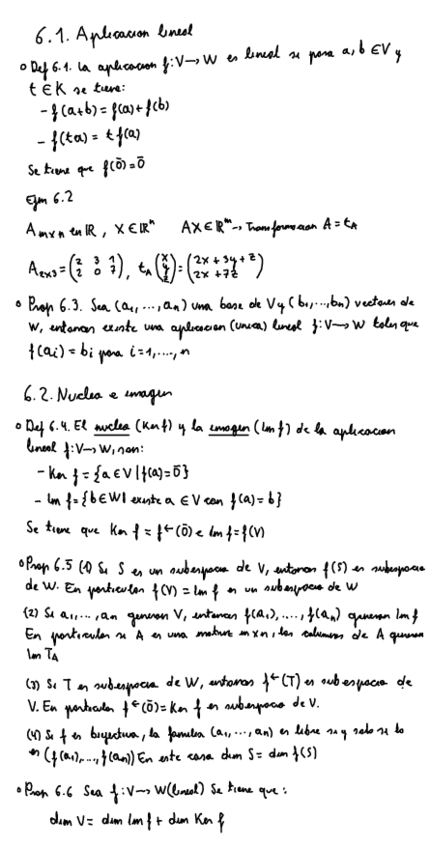 6.1. Aplicacion lineal
o Def 6.1. La aplicacion f: V→W es lineal si para a, b ∈ V y
t ∈ K se tiene:
- f(a+b) = f(a) + f(b)
- f(ta) = t f(a)
Se tiene que f(0̄) = 0̄
Ejm 6.2
A mxn en ℝ, X ∈ ℝⁿ AX ∈ ℝᵐ → Transformacion A = t_A
A₂ₓ₃ = (2 3 1 / 2 0 7), t_A (x / y / z) = (2x + 3y + z / 2x + 7z)
o Prop 6.3. Sea (a₁, ..., aₙ) una base de V y (b₁, ..., bₙ) vectores de
W, entonces existe una aplicacion (unica) lineal f: V→W tales que
f(aᵢ) = bᵢ para i = 1, ..., n
6.2. Nucleo e imagen
o Def 6.4. El nucleo (Ker f) y la imagen (Im f) de la aplicacion
lineal f: V→W, son:
- Ker f = {a ∈ V | f(a) = 0̄}
- Im f = {b ∈ W | existe a ∈ V con f(a) = b}
Se tiene que Ker f = f←(0̄) e Im f = f(V)
o Prop 6.5 (1) Si S es un subespacio de V, entonces f(S) es subespacio
de W. En particular f(V) = Im f es un subespacio de W
(2) Si a₁, ..., an generan V, entonces f(a₁), ..., f(aₙ) generan Im f
En particular si A es una matriz mxn, las columnas de A generan
Im T_A
(3) Si T es subespacio de W, entonces f←(T) es subespacio de
V. En particular f←(0̄) = Ker f es subespacio de V.
(4) Si f es biyectiva, la familia (a₁, ..., aₙ) es libre si y solo si lo
es (f(a₁), ..., f(aₙ)) En este caso dim S = dim f(S)
o Prop. 6.6 Sea f: V→W (lineal) Se tiene que:
dim V = dim Im f + dim Ker f